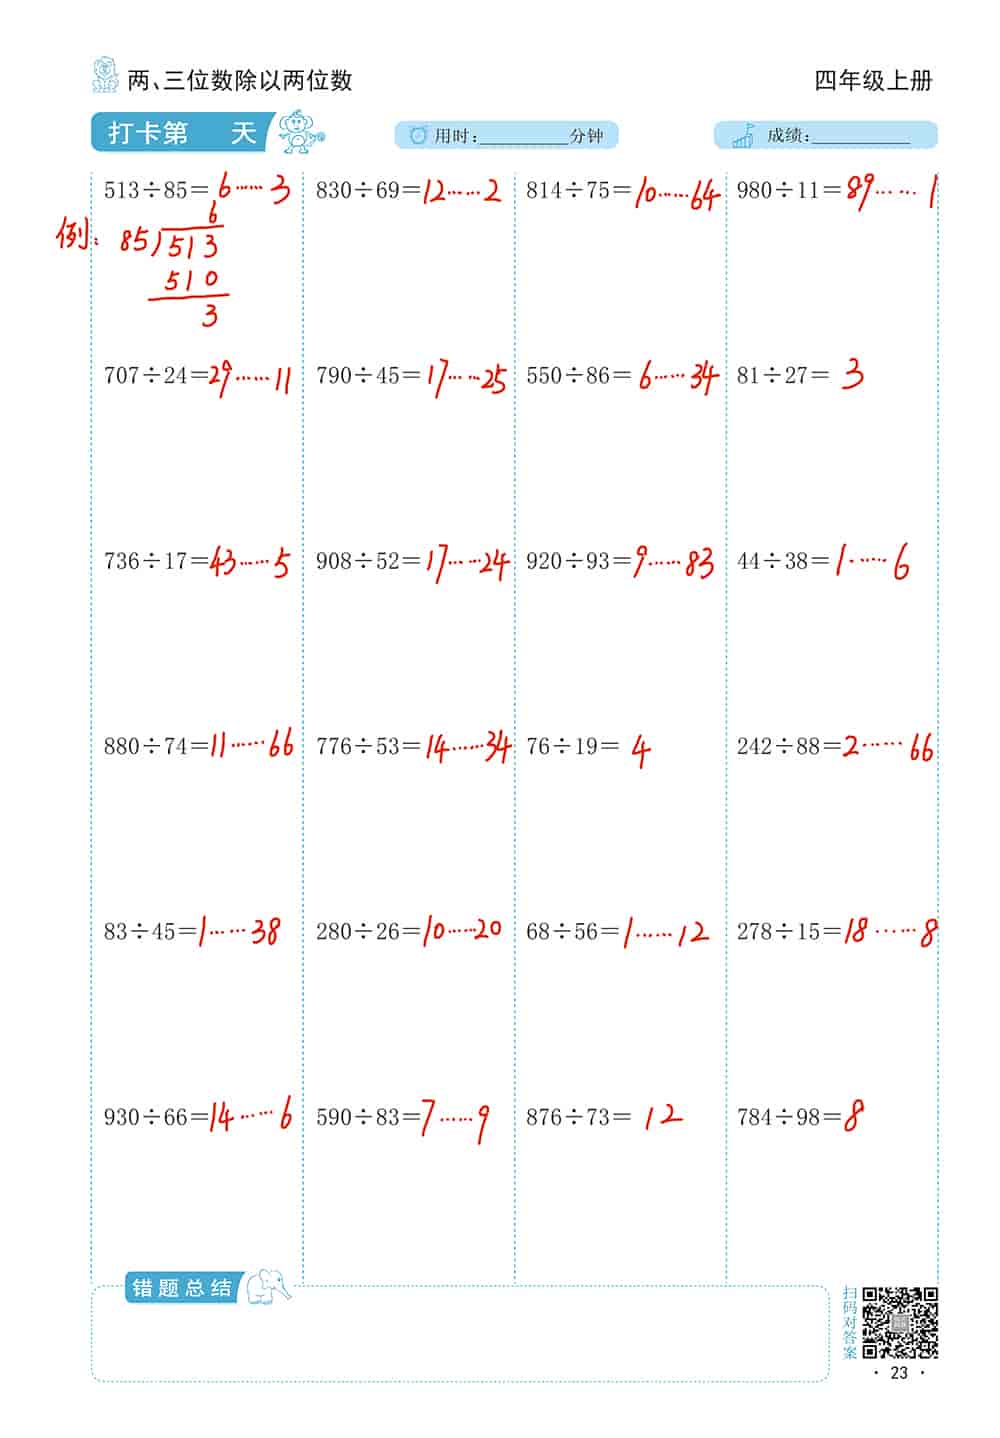 两、三位数除以两位数 四年级上册
打卡第 天 用时:__________分钟 成绩:__________
513÷85=6……3 830÷69=12……2 814÷75=10……64 980÷11=89……1
例: 6
85)513
510
3
707÷24=29……11 790÷45=17……25 550÷86=6……34 81÷27=3
736÷17=43……5 908÷52=17……24 920÷93=9……83 44÷38=1……6
880÷74=11……66 776÷53=14……34 76÷19=4 242÷88=2……66
83÷45=1……38 280÷26=10……20 68÷56=1……12 278÷15=18……8
930÷66=14……6 590÷83=7……9 876÷73=12 784÷98=8
错题总结
扫码对答案
·23·